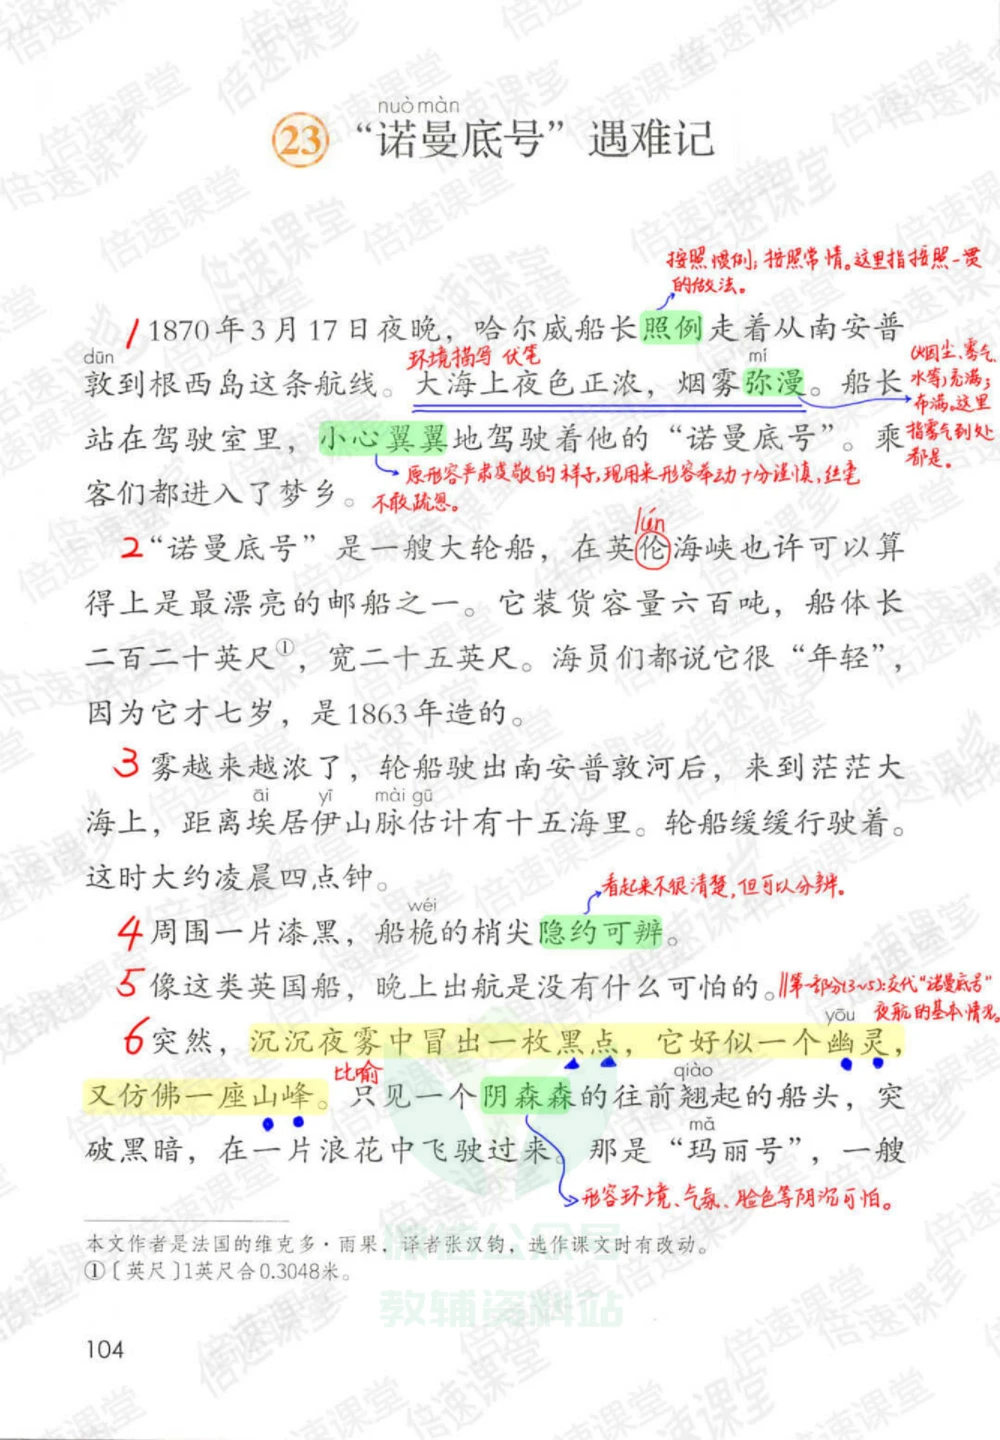 nuò màn
23 “诺曼底号”遇难记
按照惯例；按照常情。这里指按照一贯
的做法。
1 1870年3月17日夜晚，哈尔威船长照例走着从南安普
dūn
环境描写 伏笔
mí
(烟尘、雾气、
敦到根西岛这条航线。大海上夜色正浓，烟雾弥漫。船长
水等)充满；
布满。这里
站在驾驶室里，小心翼翼地驾驶着他的“诺曼底号”。乘
指雾气到处
都是。
原形容严肃虔敬的样子，现用来形容举动十分谨慎，丝毫
客们都进入了梦乡。
不敢疏忽。
lún
2 “诺曼底号”是一艘大轮船，在英伦海峡也许可以算
得上是最漂亮的邮船之一。它装货容量六百吨，船体长
二百二十英尺①，宽二十五英尺。海员们都说它很“年轻”，
因为它才七岁，是1863年造的。
3 雾越来越浓了，轮船驶出南安普敦河后，来到茫茫大
āi yī mài gū
海上，距离埃居伊山脉估计有十五海里。轮船缓缓行驶着。
这时大约凌晨四点钟。
看起来不很清楚，但可以分辨。
wéi
4 周围一片漆黑，船桅的梢尖隐约可辨。
5 像这类英国船，晚上出航是没有什么可怕的。
‖第一部分(3~5)：交代“诺曼底号”
夜航的基本情况。
yōu
6 突然，沉沉夜雾中冒出一枚黑点，它好似一个幽灵，
比喻
qiào
又仿佛一座山峰。只见一个阴森森的往前翘起的船头，突
mǎ
破黑暗，在一片浪花中飞驶过来。那是“玛丽号”，一艘
形容环境、气氛、脸色等阴沉可怕。
本文作者是法国的维克多·雨果，译者张汉钧，选作课文时有改动。
①〔英尺〕1英尺合0.3048米。
微信公众号
教辅资料站
104
倍速课堂